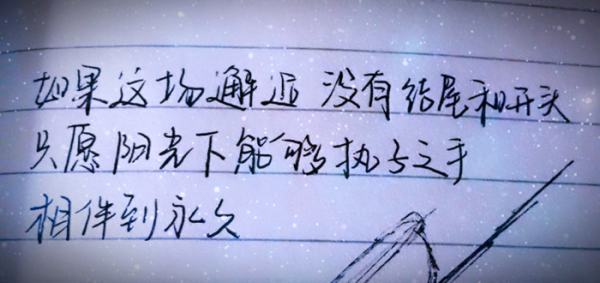 如果这场邂逅 没有结尾和开头
只愿阳光下能够执子之手
相伴到永久